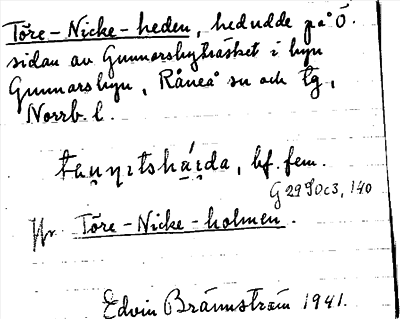 Töre-Nicke-heden, hedudde på Ö.
sidan av Gunnarsbyträsket i byn
Gunnarsbyn, Råneå sn och tg,
Norrb. l.
bf. fem.
G 29 S0c3, 140
Jfr Töre-Nicke-holmen.
Edvin Brännström 1941.